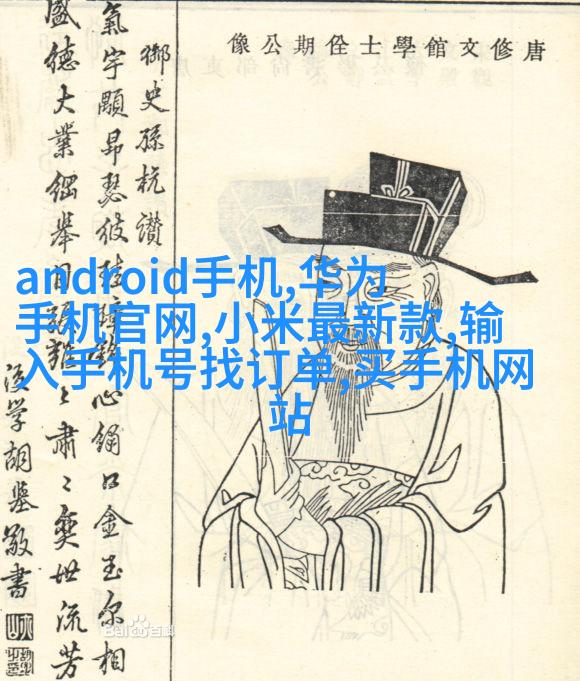 唐修文館學士佺期公像
御史孫杭讚
氣宇顒昂瑟彼心口金玉尔相
盛德大業綱舉目張肅〻奕世流芳
後學胡敬書
android手机,华为
手机官网,小米最新款,输
入手机号找订单,买手机网
站
Bai百科